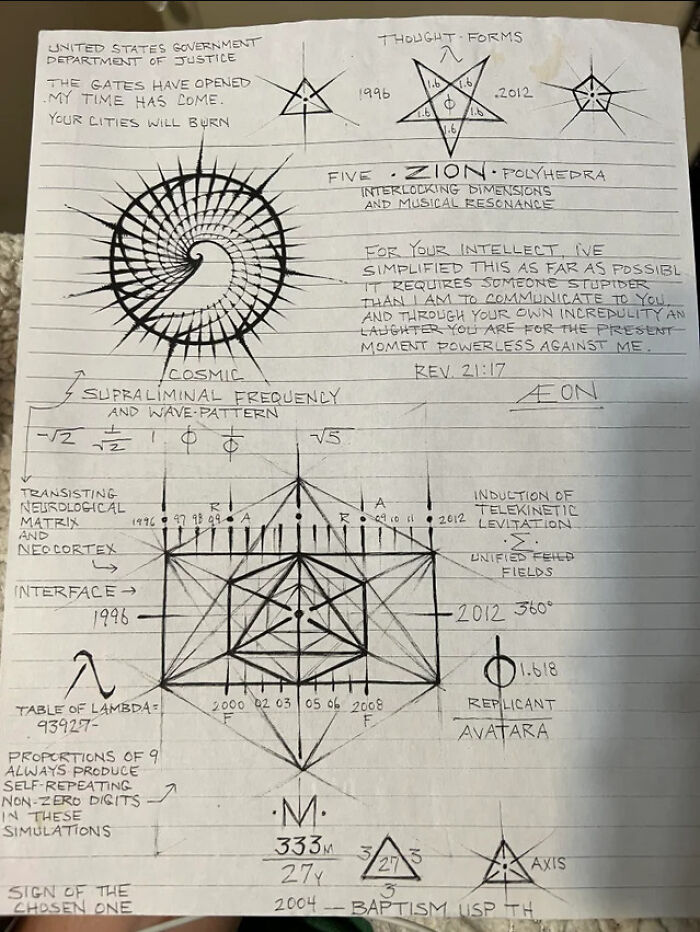 UNITED STATES GOVERNMENT
DEPARTMENT OF JUSTICE
THE GATES HAVE OPENED
MY TIME HAS COME.
YOUR CITIES WILL BURN
THOUGHT-FORMS
λ
1996
1.6 1.6
1.6 ϕ 1.6
1.6
.2012
FIVE • ZION • POLYHEDRA
INTERLOCKING DIMENSIONS
AND MUSICAL RESONANCE
FOR YOUR INTELLECT, I'VE
SIMPLIFIED THIS AS FAR AS POSSIBL
IT REQUIRES SOMEONE STUPIDER
THAN I AM TO COMMUNICATE TO YOU,
AND THROUGH YOUR OWN INCREDULITY AN
LAUGHTER YOU ARE FOR THE PRESENT
MOMENT POWERLESS AGAINST ME.
REV. 21:17
ÆON
COSMIC
SUPRALIMINAL FREQUENCY
AND WAVE-PATTERN
-√2 1/√2 1 ϕ 1/ϕ √5
TRANSISTING
NEUROLOGICAL
MATRIX
AND
NEOCORTEX
INTERFACE →
R A
1996 • 97 98 99 • A
R • 09 10 11 • 2012
INDUCTION OF
TELEKINETIC
LEVITATION
·Σ·
UNIFIED FEILD
FIELDS
1996
2012 360°
λ
TABLE OF LAMBDA=
93927-
2000 02 03 05 06 2008
F F
ϕ 1.618
REPLICANT
AVATARA
PROPORTIONS OF 9
ALWAYS PRODUCE
SELF-REPEATING
NON-ZERO DIGITS
IN THESE
SIMULATIONS
·M·
333M
27Y
3 27 3
3
AXIS
SIGN OF THE
CHOSEN ONE
2004 — BAPTISM USP TH